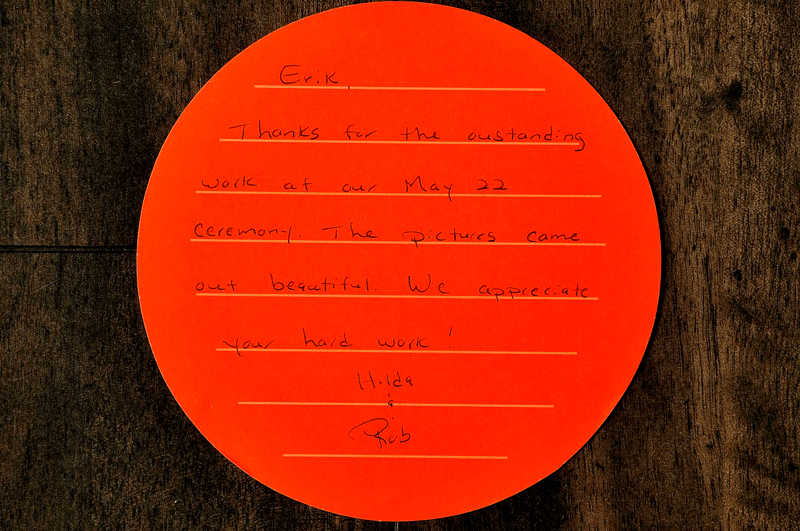 Erik,
Thanks for the oustanding
work at our May 22
ceremony. The pictures came
out beautiful. We appreciate
your hard work!
Hilda
&
Rob